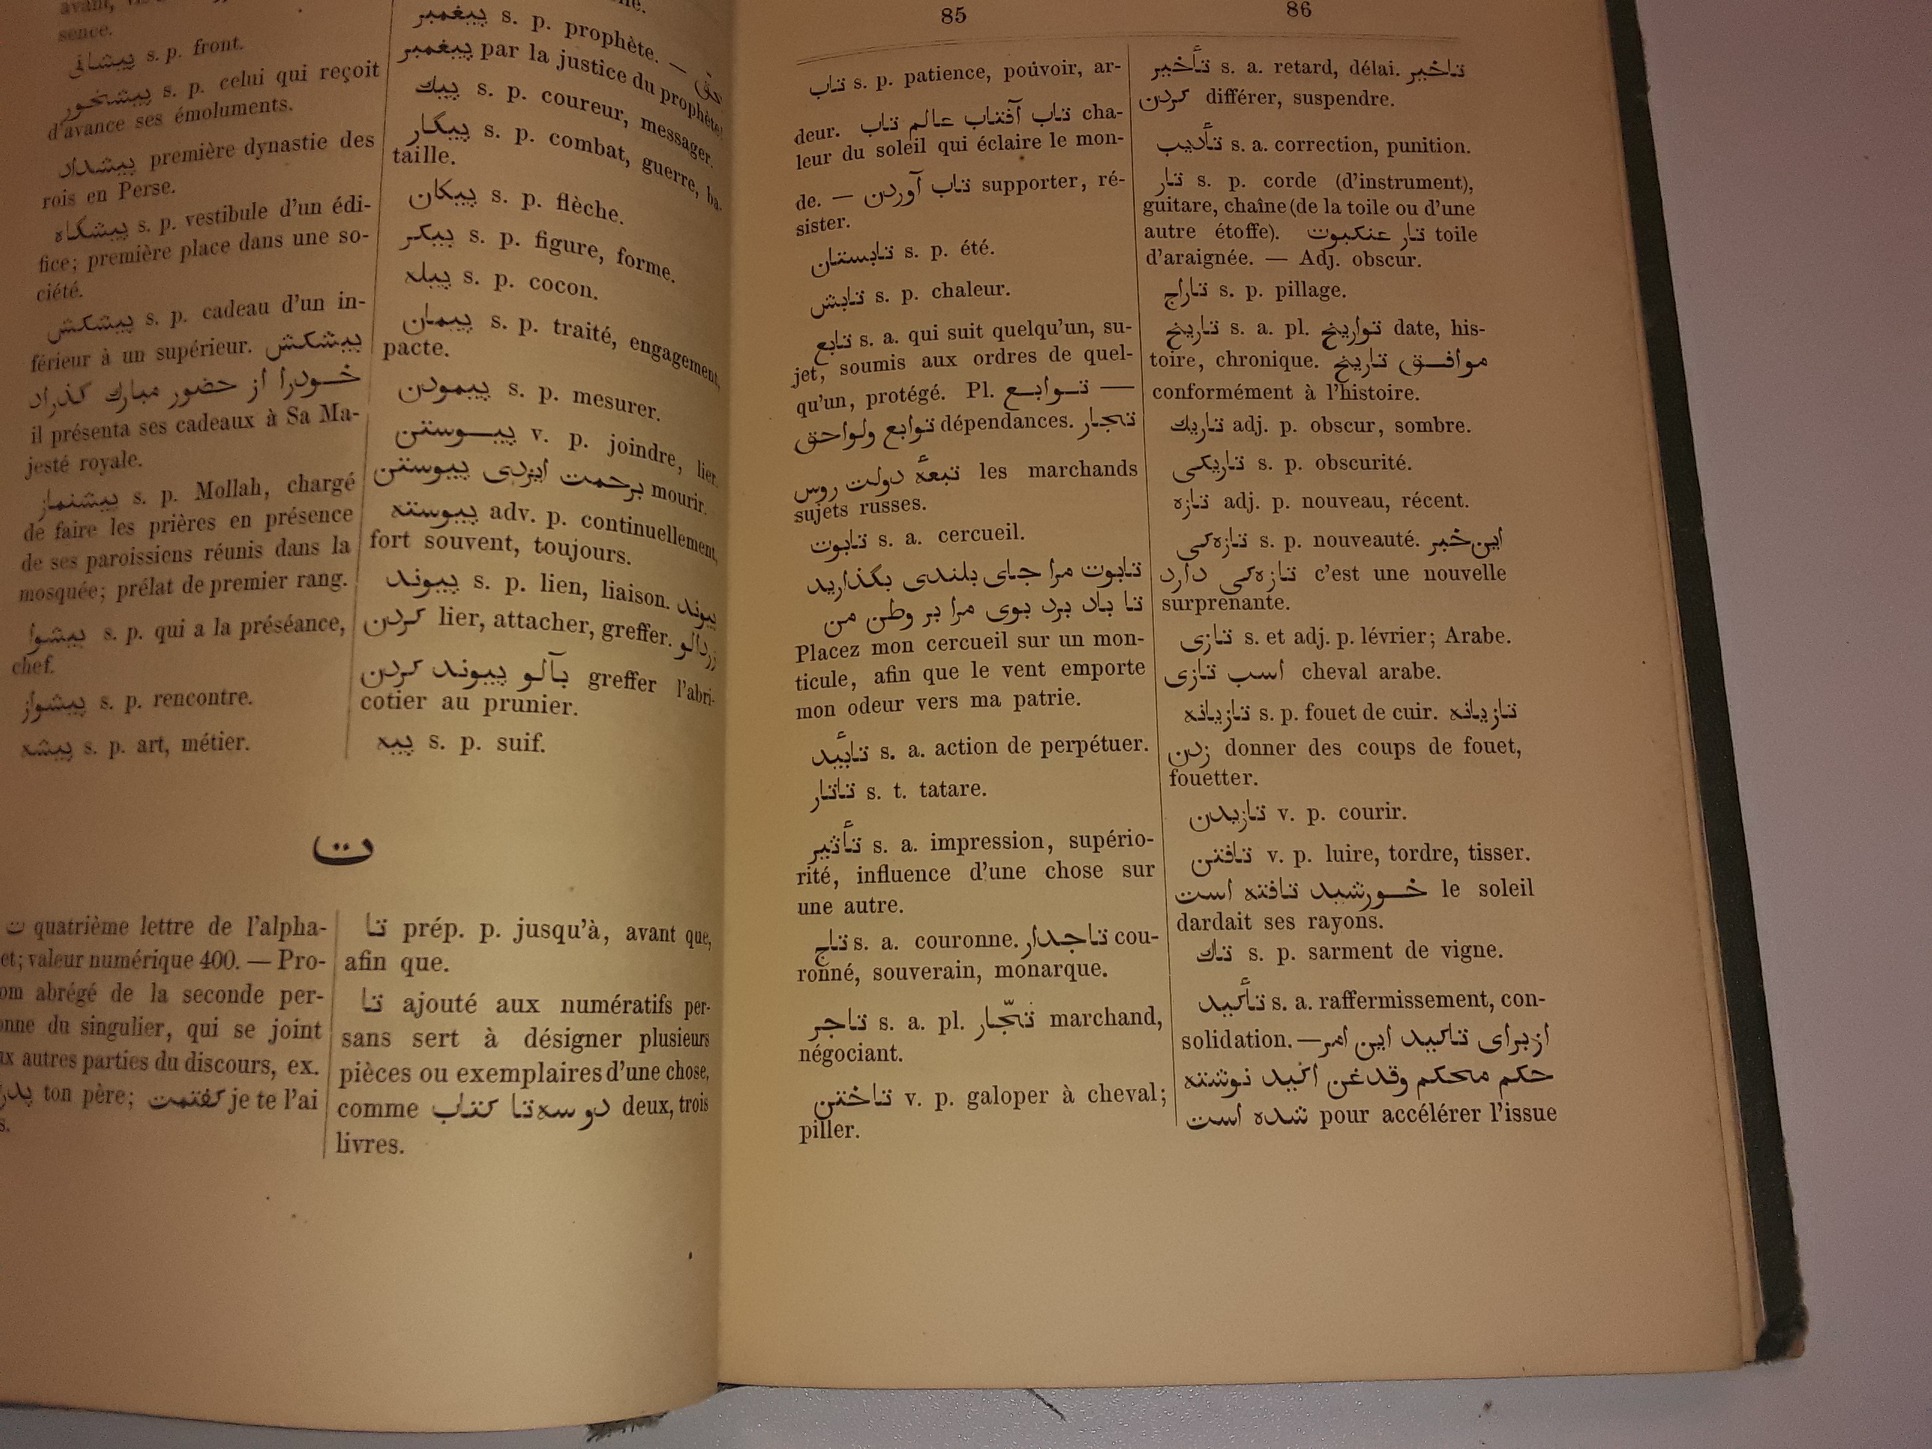 sence.
پیشانی s. p. front.
پیشخور s. p. celui qui reçoit
d'avance ses émoluments.
پیشداد première dynastie des
rois en Perse.
پیشگاه s. p. vestibule d'un édi-
fice; première place dans une so-
ciété.
پیشکش s. p. cadeau d'un in-
férieur à un supérieur. پیشکش
خودرا از حضور مبارك كذراد
il présenta ses cadeaux à Sa Ma-
jesté royale.
پیشنماز s. p. Mollah, chargé
de faire les prières en présence
de ses paroissiens réunis dans la
mosquée; prélat de premier rang.
پیشوا s. p. qui a la préséance,
chef.
پیشواز s. p. rencontre.
پیشه s. p. art, métier.
پیغمبر s. p. prophète. — حق
پیغمبر par la justice du prophète!
پیك s. p. coureur, messager.
پیگار s. p. combat, guerre, ba-
taille.
پیکان s. p. flèche.
پیکر s. p. figure, forme.
پیله s. p. cocon.
پیمان s. p. traité, engagement,
pacte.
پیمودن s. p. mesurer.
پیوستن v. p. joindre, lier.
برحمت ایزدی پیوستن mourir.
پیوسته adv. p. continuellement,
fort souvent, toujours.
پیوند s. p. lien, liaison. پیوند
كردن lier, attacher, greffer. زردآلو
بآلو پیوند كردن greffer l'abri-
cotier au prunier.
پیه s. p. suif.
ت
ت quatrième lettre de l'alpha-
et; valeur numérique 400. — Pro-
om abrégé de la seconde per-
onne du singulier, qui se joint
ux autres parties du discours, ex.
ton père; كفتمت je te l'ai
s.
تا prép. p. jusqu'à, avant que,
afin que.
تا ajouté aux numératifs per-
sans sert à désigner plusieurs
pièces ou exemplaires d'une chose,
comme دو سه تا كتاب deux, trois
livres.
85
تاب s. p. patience, pouvoir, ar-
deur. تاب آفتاب عالم تاب cha-
leur du soleil qui éclaire le mon-
de. — تاب آوردن supporter, ré-
sister.
تابستان s. p. été.
تابش s. p. chaleur.
تابع s. a. qui suit quelqu'un, su-
jet, soumis aux ordres de quel-
qu'un, protégé. Pl. توابع —
توابع ولواحق dépendances. تجار
تبعهٔ دولت روس les marchands
sujets russes.
تابوت s. a. cercueil.
تابوت مرا جای بلندی بگذارید
تا باد برد بوی مرا بر وطن من
Placez mon cercueil sur un mon-
ticule, afin que le vent emporte
mon odeur vers ma patrie.
تأبید s. a. action de perpétuer.
تاتار s. t. tatare.
تأثیر s. a. impression, supério-
rité, influence d'une chose sur
une autre.
تاج s. a. couronne. تاجدار cou-
ronné, souverain, monarque.
تاجر s. a. pl. تجّار marchand,
négociant.
تاختن v. p. galoper à cheval;
piller.
86
تأخیر s. a. retard, délai. تاخیر
كردن différer, suspendre.
تأدیب s. a. correction, punition.
تار s. p. corde (d'instrument),
guitare, chaîne (de la toile ou d'une
autre étoffe). تار عنكبوت toile
d'araignée. — Adj. obscur.
تاراج s. p. pillage.
تاریخ s. a. pl. تواریخ date, his-
toire, chronique. موافق تاریخ
conformément à l'histoire.
تاریك adj. p. obscur, sombre.
تاریکی s. p. obscurité.
تازه adj. p. nouveau, récent.
تازه‌کی s. p. nouveauté. این خبر
تازه‌کی دارد c'est une nouvelle
surprenante.
تازی s. et adj. p. lévrier; Arabe.
اسب تازی cheval arabe.
تازیانه s. p. fouet de cuir. تازیانه
زدن donner des coups de fouet,
fouetter.
تازیدن v. p. courir.
تافتن v. p. luire, tordre, tisser.
خورشید تافته است le soleil
dardait ses rayons.
تاك s. p. sarment de vigne.
تأکید s. a. raffermissement, con-
solidation. — ازبرای تاکید این امر
حکم محکم وقدغن اکید نوشته
شده است pour accélérer l'issue